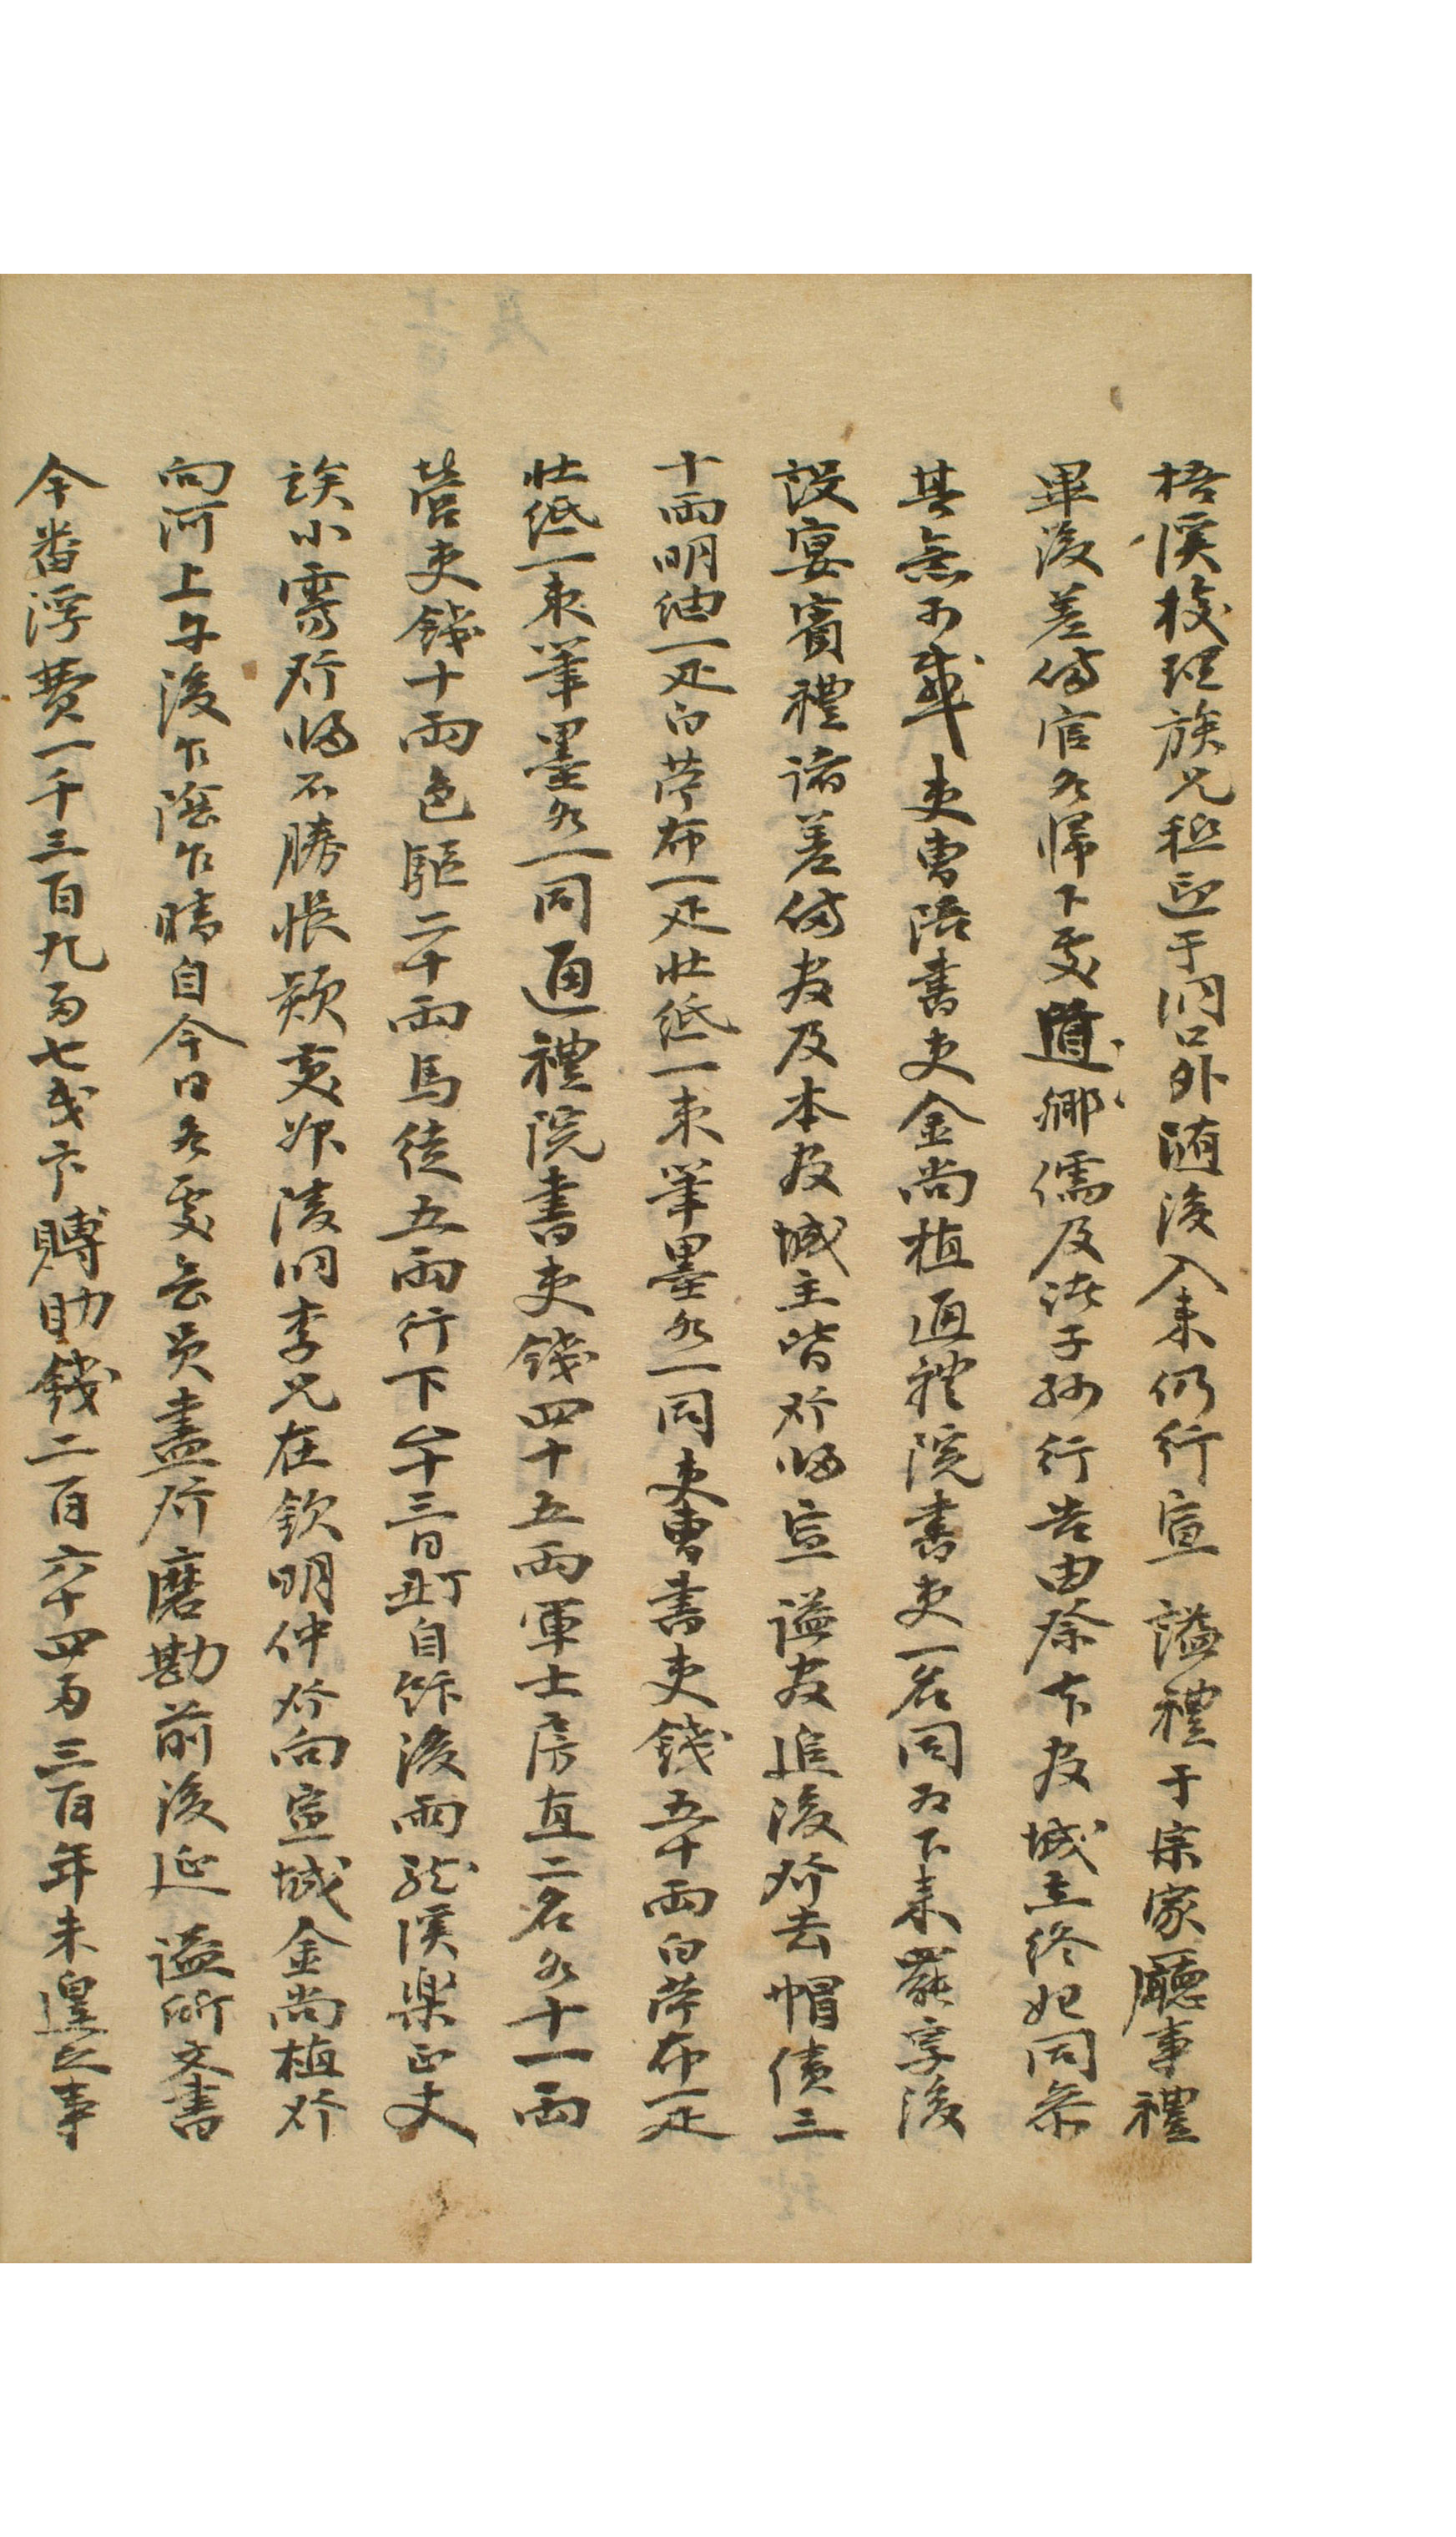 梧溪校理族兄祗迎于洞口外随後入来仍行宣 諡禮于宗家廳事禮
畢後差備官各歸下處道鄉儒及諸子孫行告由祭本官城主終始同參
其無不盛吏曹陪書吏金尚植通礼院書吏一名同為下来罷享後
設宴賓禮諸差備官及本官城主皆發歸宣 諡官追後發去帽債三
十兩明紬一疋白苧布一疋壯紙一束筆墨各一同吏曹書吏錢五十兩白苧布一疋
壯紙一束筆墨各一同通禮院書吏錢四十五兩軍士房直二名各十一兩
營吏錢十兩色驅二十兩馬徒五兩行下 二十三日 自 後雨 溪樂正丈
族小 發歸不勝悵歎 陵洞李兄在欽明仲發向宣城金尚植發
向河上午後乍陰乍晴自今日各處 員盡發磨勘前後延 諡所文書
今番浮費一千三百九兩七戔 賻助錢二百六十四兩三百年未遑之事